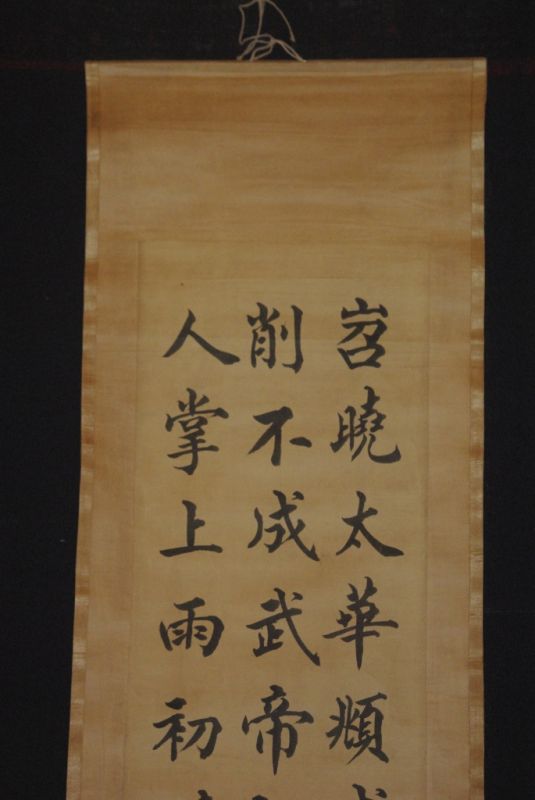 岧曉太華頫
削不成武帝
人掌上雨初